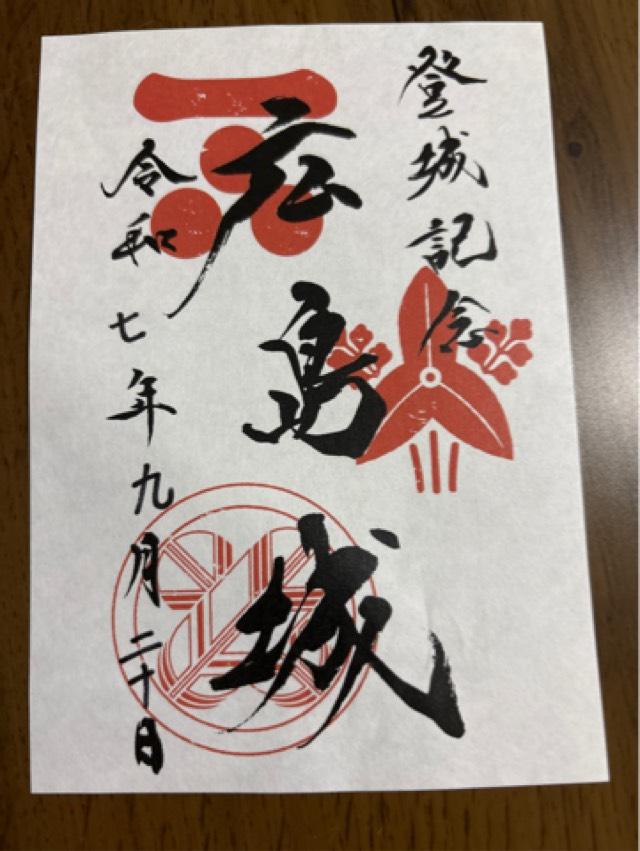 登城記念
広島城
令和七年九月二十日